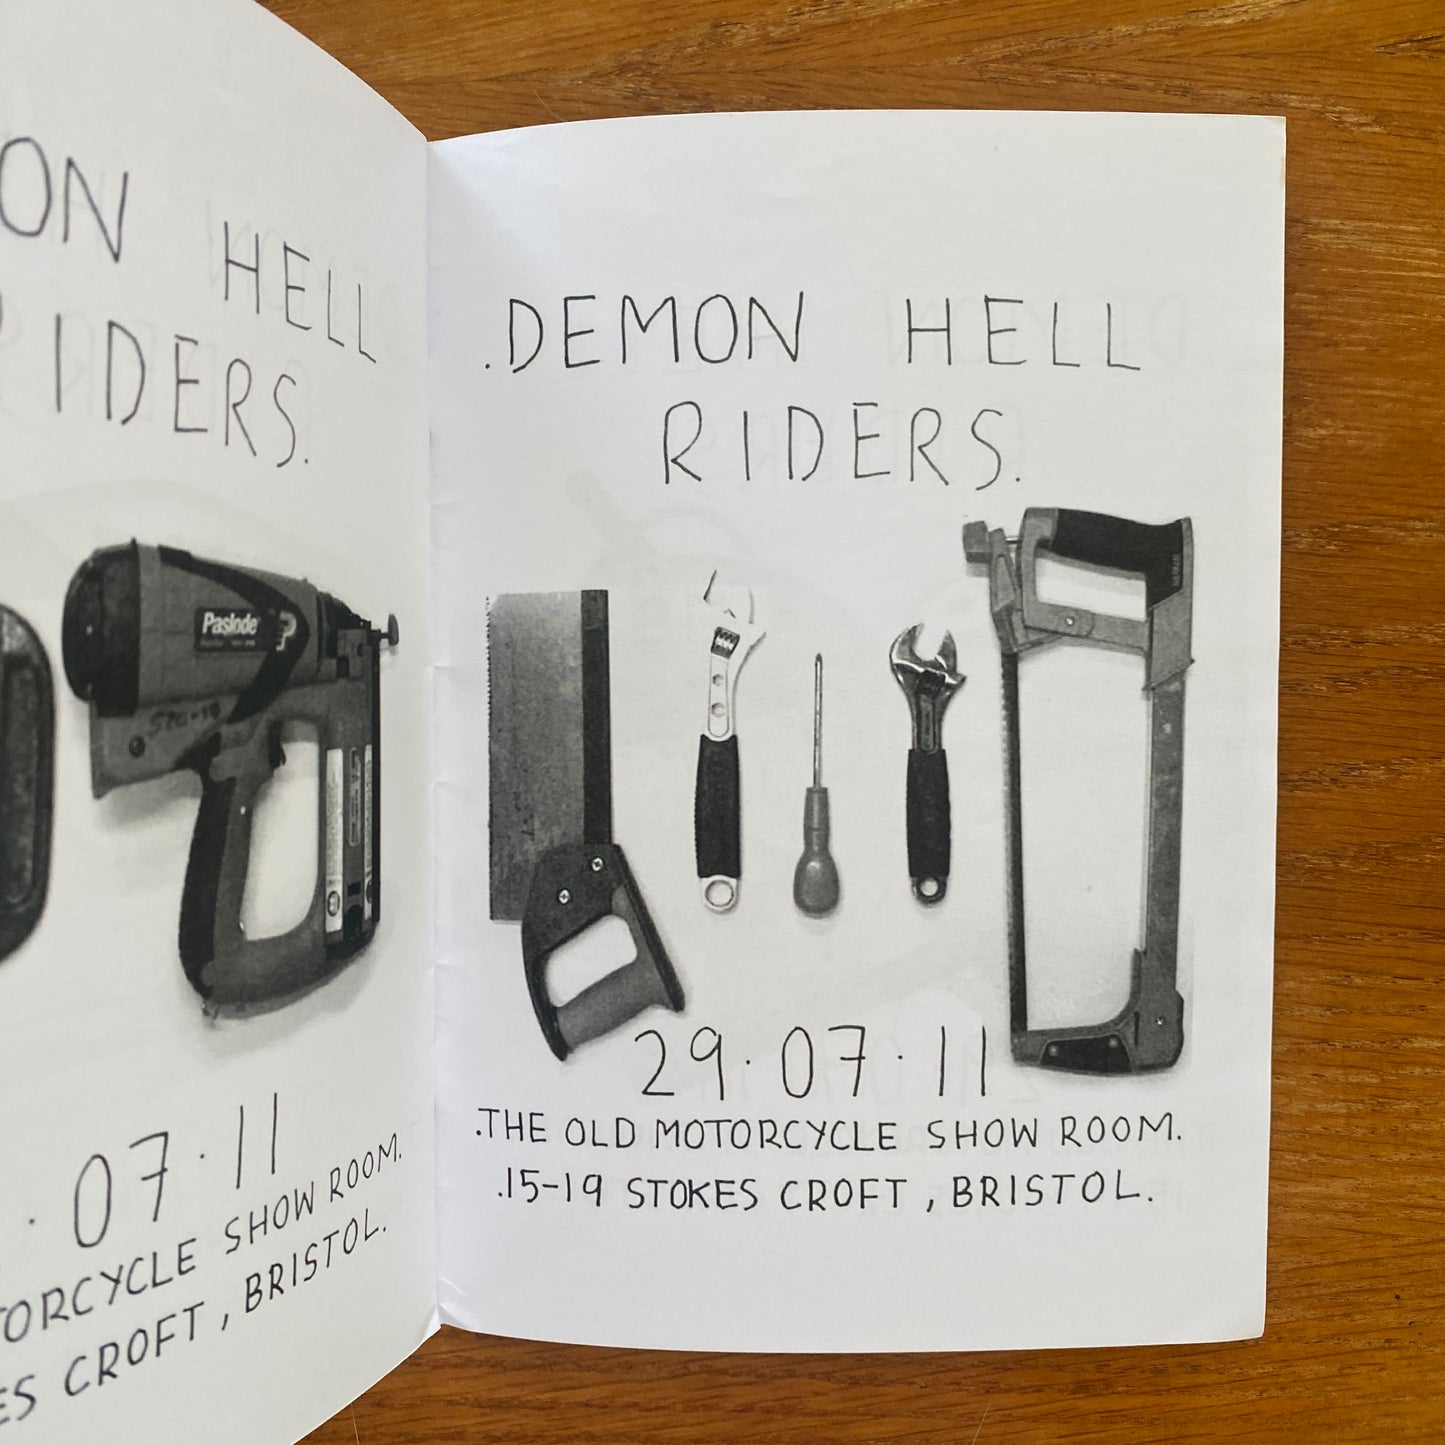 ON HELL
RIDERS.
Paslode
. 07 . 11
TORCYCLE SHOW ROOM.
ES CROFT , BRISTOL.
.DEMON HELL
RIDERS.
29 . 07 . 11
.THE OLD MOTORCYCLE SHOW ROOM.
.15-19 STOKES CROFT , BRISTOL.